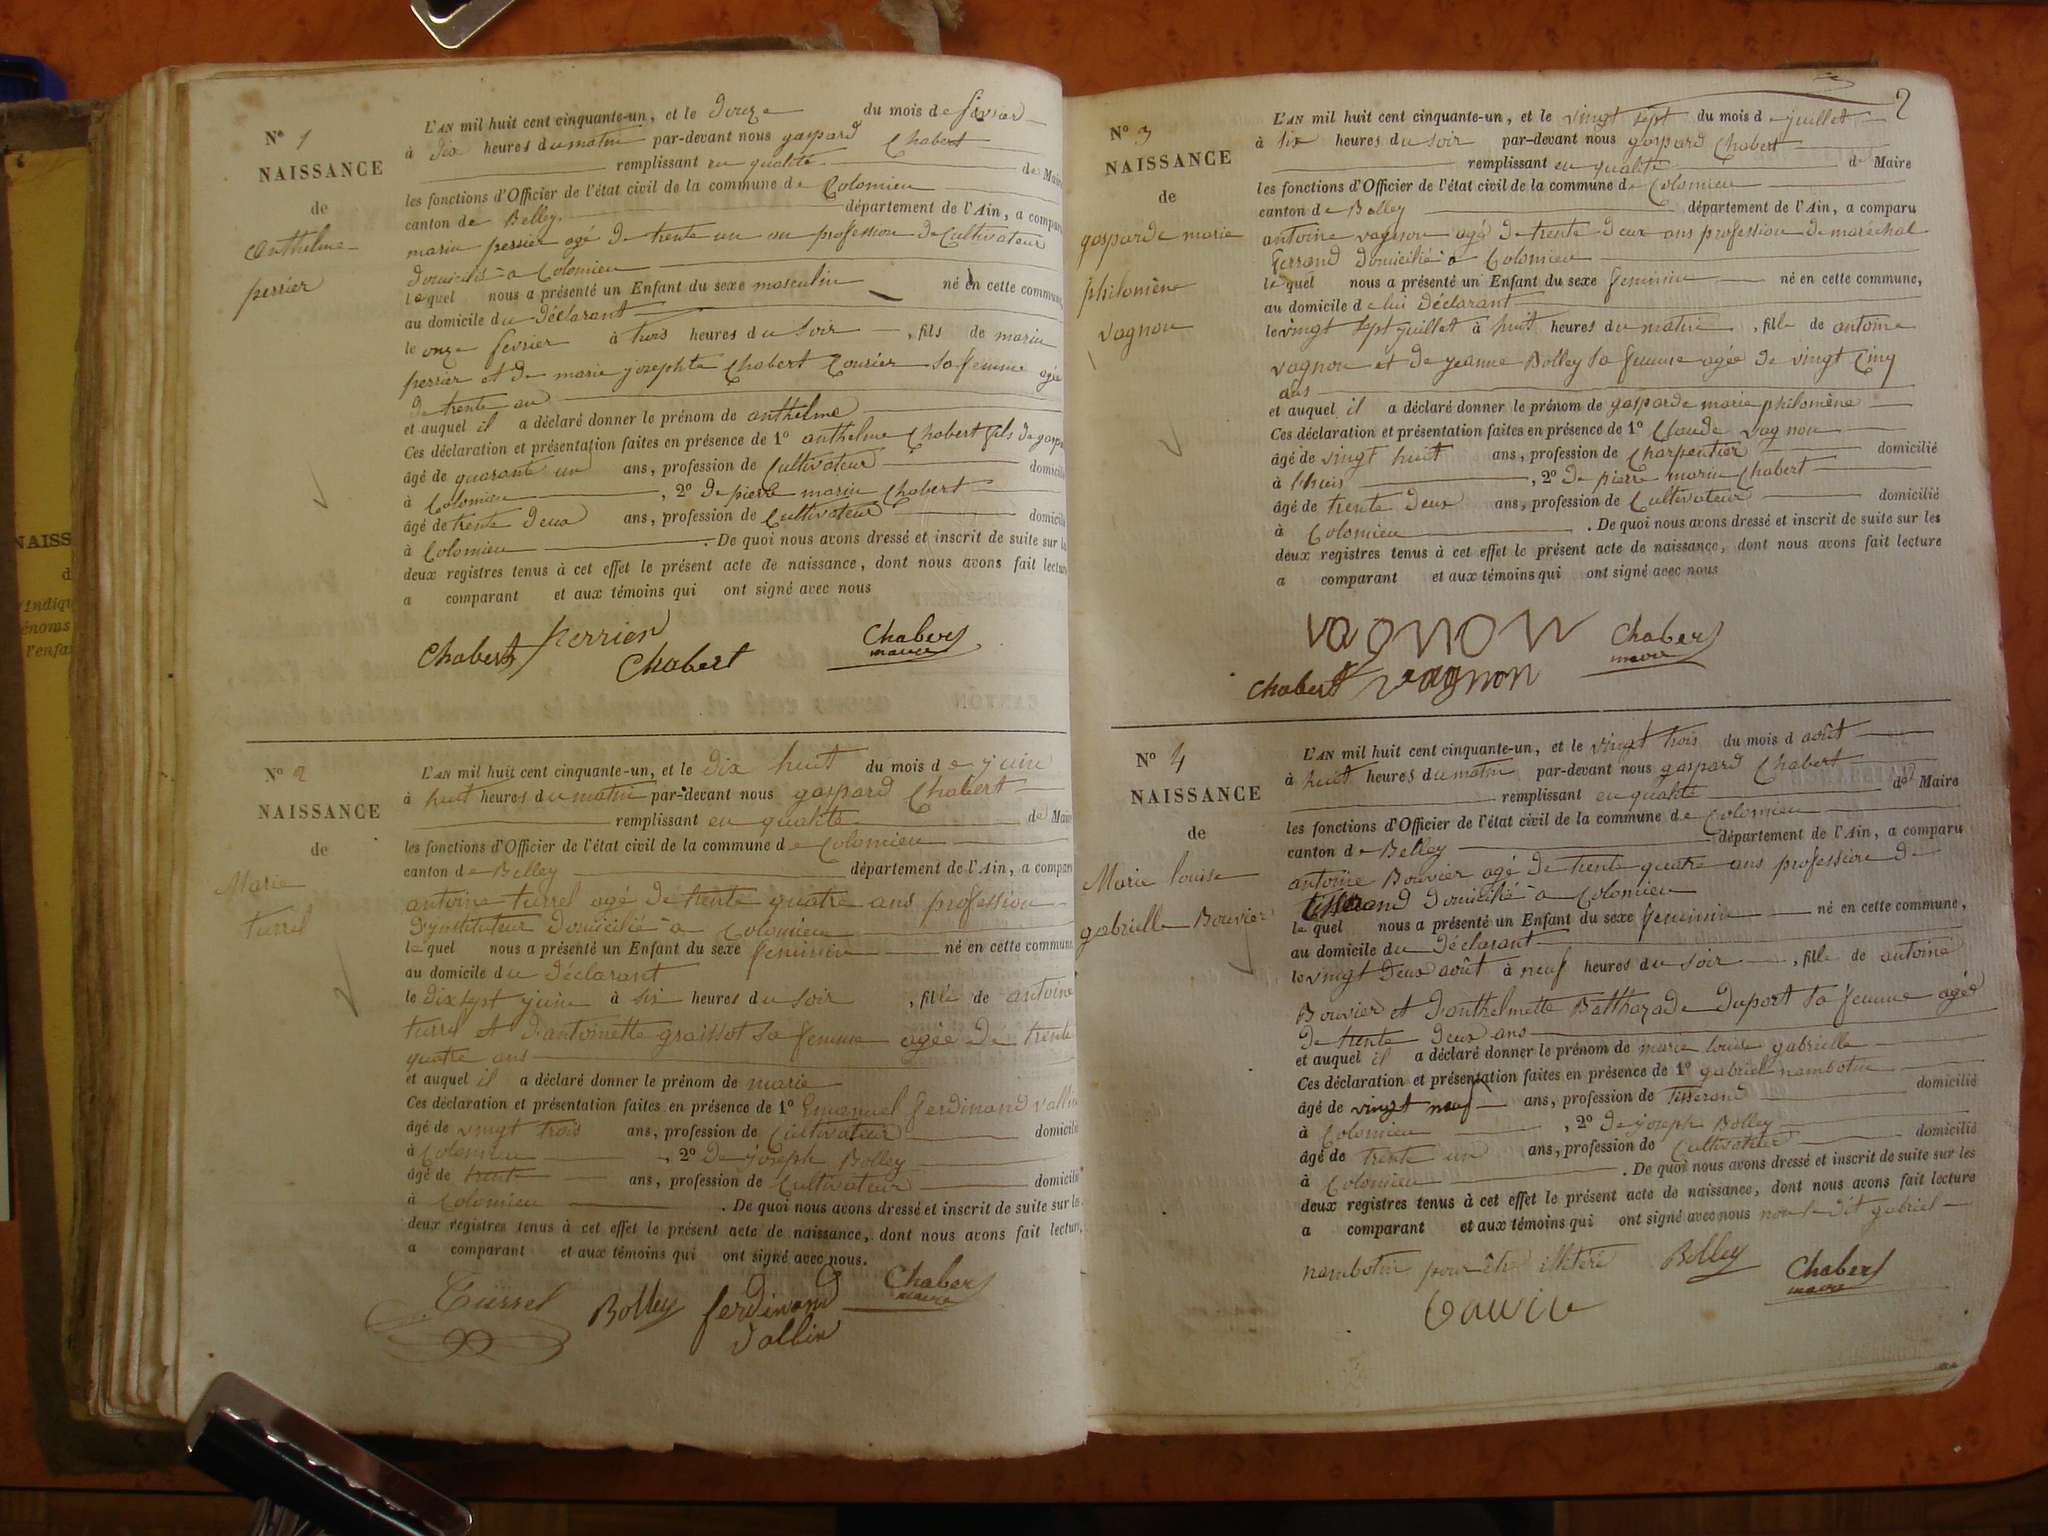 N° 1
NAISSANCE
de
Anthelme
perrier
L'AN mil huit cent cinquante-un, et le Douze du mois de fevrier
à dix heures du matin par-devant nous gaspard Chabert
remplissant en qualité de Maire
les fonctions d'Officier de l'état civil de la commune de Colomieu
canton de Belley département de l'Ain, a comparu
marin perrier agé de trente un an profession de Cultivateur
domicilié a Colomieu
lequel nous a présenté un Enfant du sexe masculin né en cette commune
au domicile du déclarant
le onze fevrier à trois heures du soir, fils de marin
perrier et de marie josephte Chabert Courier sa femme agée
de trente an
et auquel il a déclaré donner le prénom de anthelme
Ces déclaration et présentation faites en présence de 1° anthelme Chabert fils de gaspa
âgé de quarante un ans, profession de Cultivateur domicilié
à Colomieu, 2° de pierre marin Chabert
âgé de trente deux ans, profession de Cultivateur domicilié
à Colomieu. De quoi nous avons dressé et inscrit de suite sur les
deux registres tenus à cet effet le présent acte de naissance, dont nous avons fait lecture
a comparant et aux témoins qui ont signé avec nous
Chabert perrier Chabert Chabert
maire
N° 2
NAISSANCE
de
Marie
turrel
L'AN mil huit cent cinquante-un, et le dix huit du mois de juin
à huit heures du matin par-devant nous gaspard Chabert
remplissant en qualité de Maire
les fonctions d'Officier de l'état civil de la commune de Colomieu
canton de Belley département de l'Ain, a comparu
antoine turrel agé de trente quatre ans profession
d'ynstituteur domicilié a Colomieu
lequel nous a présenté un Enfant du sexe feminin né en cette commune
au domicile du déclarant
le dix sept juin à six heures du soir, fille de antoine
turrel et d'antoinette graissot sa femme agée de trente
quatre ans
et auquel il a déclaré donner le prénom de marie
Ces déclaration et présentation faites en présence de 1° Emanuel ferdinand Vallin
âgé de vingt trois ans, profession de Cultivateur domicilié
à Colomieu, 2° de joseph Bolley
âgé de trente ans, profession de Cultivateur domicilié
à Colomieu. De quoi nous avons dressé et inscrit de suite sur les
deux registres tenus à cet effet le présent acte de naissance, dont nous avons fait lecture,
a comparant et aux témoins qui ont signé avec nous.
Türrel Bolley ferdinand Chabert
maire
vallin
2
N° 3
NAISSANCE
de
gasparde marie
philomène
vagnon
L'AN mil huit cent cinquante-un, et le vingt sept du mois de juillet
à six heures du soir par-devant nous gaspard Chabert
remplissant en qualité de Maire
les fonctions d'Officier de l'état civil de la commune de Colomieu
canton de Belley département de l'Ain, a comparu
antoine vagnon agé de trente deux ans profession de maréchal
ferrand domicilié a Colomieu
lequel nous a présenté un Enfant du sexe feminin né en cette commune,
au domicile de lui déclarant
le vingt sept juillet à huit heures du matin, fille de antoine
vagnon et de jeanne Bolley sa femme agée de vingt cinq
ans
et auquel il a déclaré donner le prénom de gasparde marie philomène
Ces déclaration et présentation faites en présence de 1° Claude vagnon
âgé de vingt huit ans, profession de Charpentier domicilié
à lhuis, 2° de pierre marin Chabert
âgé de trente deux ans, profession de Cultivateur domicilié
à Colomieu. De quoi nous avons dressé et inscrit de suite sur les
deux registres tenus à cet effet le présent acte de naissance, dont nous avons fait lecture
a comparant et aux témoins qui ont signé avec nous
vagnon Chabert
maire
Chabert vagnon
N° 4
NAISSANCE
de
Marie louise
gabrielle Bouvier
L'AN mil huit cent cinquante-un, et le vingt trois du mois d août
à huit heures du matin par-devant nous gaspard Chabert
remplissant en qualité de Maire
les fonctions d'Officier de l'état civil de la commune de Colomieu
canton de Belley département de l'Ain, a comparu
antoine Bouvier agé de trente quatre ans profession de
tisserand domicilié a Colomieu
lequel nous a présenté un Enfant du sexe feminin né en cette commune,
au domicile du déclarant
le vingt deux août à neuf heures du soir, fille de antoine
Bouvier et d'anthelmette Batthazade duport sa femme agée
de trente deux ans
et auquel il a déclaré donner le prénom de marie louise gabrielle
Ces déclaration et présentation faites en présence de 1° gabriel nambotin
âgé de vingt neuf ans, profession de tisserand domicilié
à Colomieu, 2° de joseph Bolley
âgé de trente un ans, profession de Cultivateur domicilié
à Colomieu. De quoi nous avons dressé et inscrit de suite sur les
deux registres tenus à cet effet le présent acte de naissance, dont nous avons fait lecture
a comparant et aux témoins qui ont signé avec nous non le dit gabriel
nambotin pour être illitéré Bolley Chabert
maire
NAISS
d
énoms
l'enfa